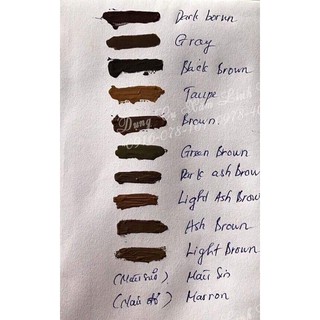 Dark borun
Gray
Black Brown
Taupe
Brown
Green Brown
Dark ash Brow
Light Ash Brow
Ash Brown
Light Brown
(Màu sừ) Màu Sin
(Nâu đỏ) Marron